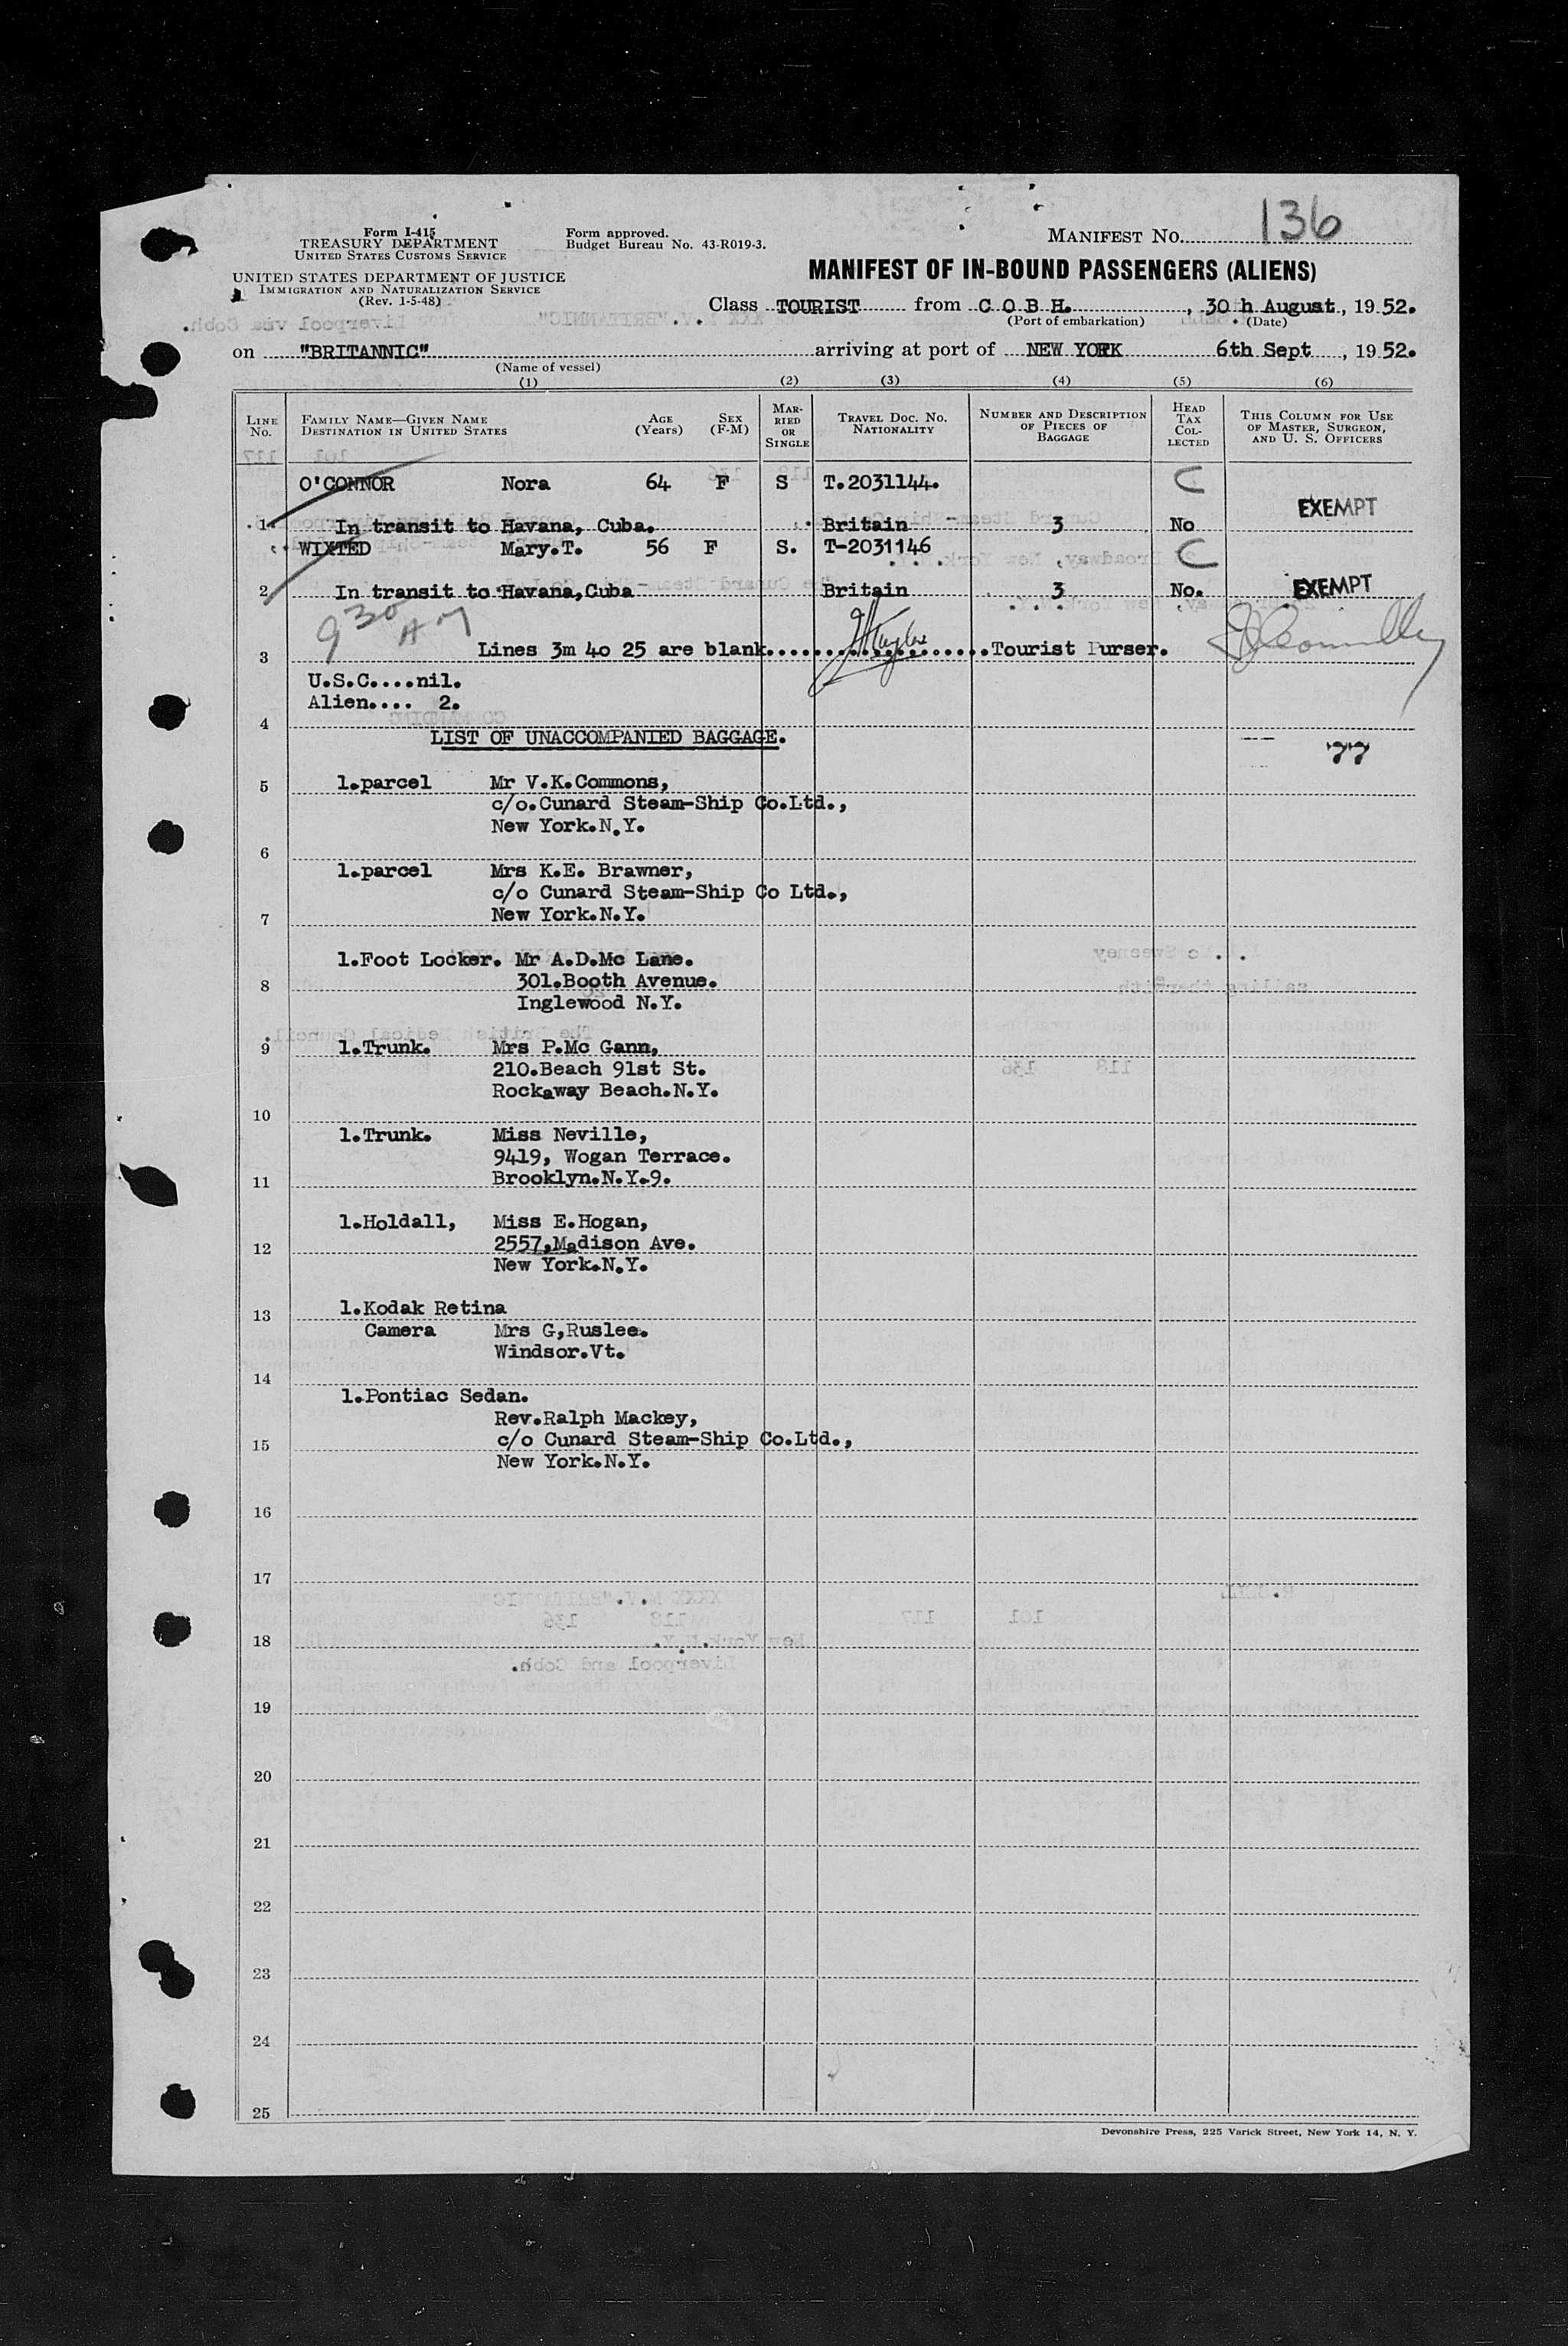 Form I-415
TREASURY DEPARTMENT
UNITED STATES CUSTOMS SERVICE
UNITED STATES DEPARTMENT OF JUSTICE
IMMIGRATION AND NATURALIZATION SERVICE
(Rev. 1-5-48)
Form approved.
Budget Bureau No. 43-R019-3.
MANIFEST NO. 136
MANIFEST OF IN-BOUND PASSENGERS (ALIENS)
Class TOURIST from C O B H. , 30 h August, 1952.
(Port of embarkation) (Date)
on "BRITANNIC" arriving at port of NEW YORK 6th Sept , 1952.
(Name of vessel)
(1) (2) (3) (4) (5) (6)
LINE No. FAMILY NAME—GIVEN NAME DESTINATION IN UNITED STATES AGE (Years) SEX (F-M) MARRIED OR SINGLE TRAVEL DOC. NO. NATIONALITY NUMBER AND DESCRIPTION OF PIECES OF BAGGAGE HEAD TAX COLLECTED THIS COLUMN FOR USE OF MASTER, SURGEON, AND U. S. OFFICERS
O'CONNOR Nora 64 F S T.2031144. C
EXEMPT
1 In transit to Havana, Cuba. Britain 3 No
WIXTED Mary.T. 56 F S. T-2031146 C
2 In transit to Havana,Cuba Britain 3 No. EXEMPT
9 30 AM
3 Lines 3m 4o 25 are blank...................Tourist Purser.
U.S.C....nil.
Alien.... 2.
4
LIST OF UNACCOMPANIED BAGGAGE.
77
5 1.parcel Mr V.K.Commons,
c/o.Cunard Steam-Ship Co.Ltd.,
New York.N.Y.
6
1.parcel Mrs K.E. Brawner,
c/o Cunard Steam-Ship Co Ltd.,
7 New York.N.Y.
1.Foot Locker. Mr A.D.Mc Lane.
8 301.Booth Avenue.
Inglewood N.Y.
9 1.Trunk. Mrs P.Mc Gann,
210.Beach 91st St.
Rockaway Beach.N.Y.
10
1.Trunk. Miss Neville,
9419, Wogan Terrace.
11 Brooklyn.N.Y.9.
1.Holdall, Miss E.Hogan,
12 2557,Madison Ave.
New York.N.Y.
13 1.Kodak Retina
Camera Mrs G,Ruslee.
Windsor.Vt.
14
1.Pontiac Sedan.
Rev.Ralph Mackey,
15 c/o Cunard Steam-Ship Co.Ltd.,
New York.N.Y.
16
17
18
19
20
21
22
23
24
25
Devonshire Press, 225 Varick Street, New York 14, N. Y.